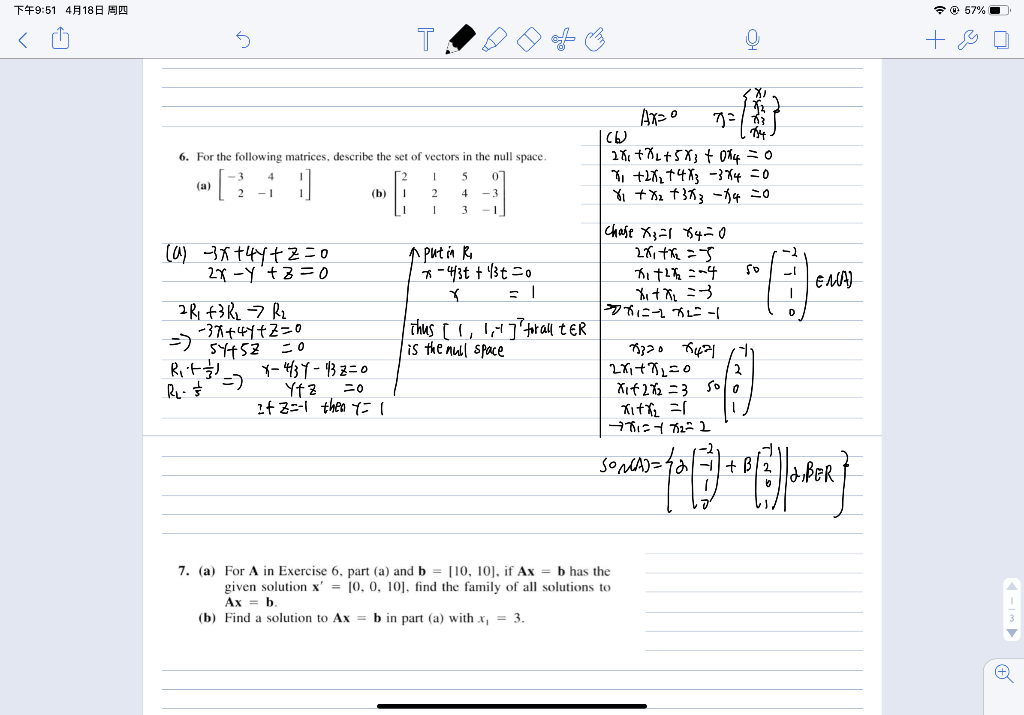 下午9:51 4月18日 周四
57%
6. For the following matrices, describe the set of vectors in the null space.
(a) [-3 4 1
2 -1 1]
(b) [2 1 5 0
1 2 4 -3
1 1 3 -1]
(a) -3x+4y+z=0
2x-y+z=0
2R1+3R2→R2
⇒ -3x+4y+z=0
5y+5z=0
R1·(-1/3)
R2·1/5
⇒ x-4/3y-1/3z=0
y+z=0
if z=-1 then y=1
put in R1
x-4/3t+1/3t=0
x=1
thus [1, 1,-1]ᵀt for all t∈R
is the null space
Ax=0 x=[x1
x2
x3
x4]
(b)
2x1+x2+5x3+0x4=0
x1+2x2+4x3-3x4=0
x1+x2+3x3-x4=0
chose x3=1 x4=0
2x1+x2=-5
x1+2x2=-4
x1+x2=-3
→x1=-2 x2=-1
so (-2
-1
1
0) ∈N(A)
x3=0 x4=1
2x1+x2=0
x1+2x2=3
x1+x2=1
→x1=-1 x2=2
so (-1
2
0
1)
so N(A)={α(-2
-1
1
0)+β(-1
2
0
1)|α,β∈R}
7. (a) For A in Exercise 6, part (a) and b = [10, 10], if Ax = b has the
given solution x′ = [0, 0, 10], find the family of all solutions to
Ax = b.
(b) Find a solution to Ax = b in part (a) with x1 = 3.
1
3